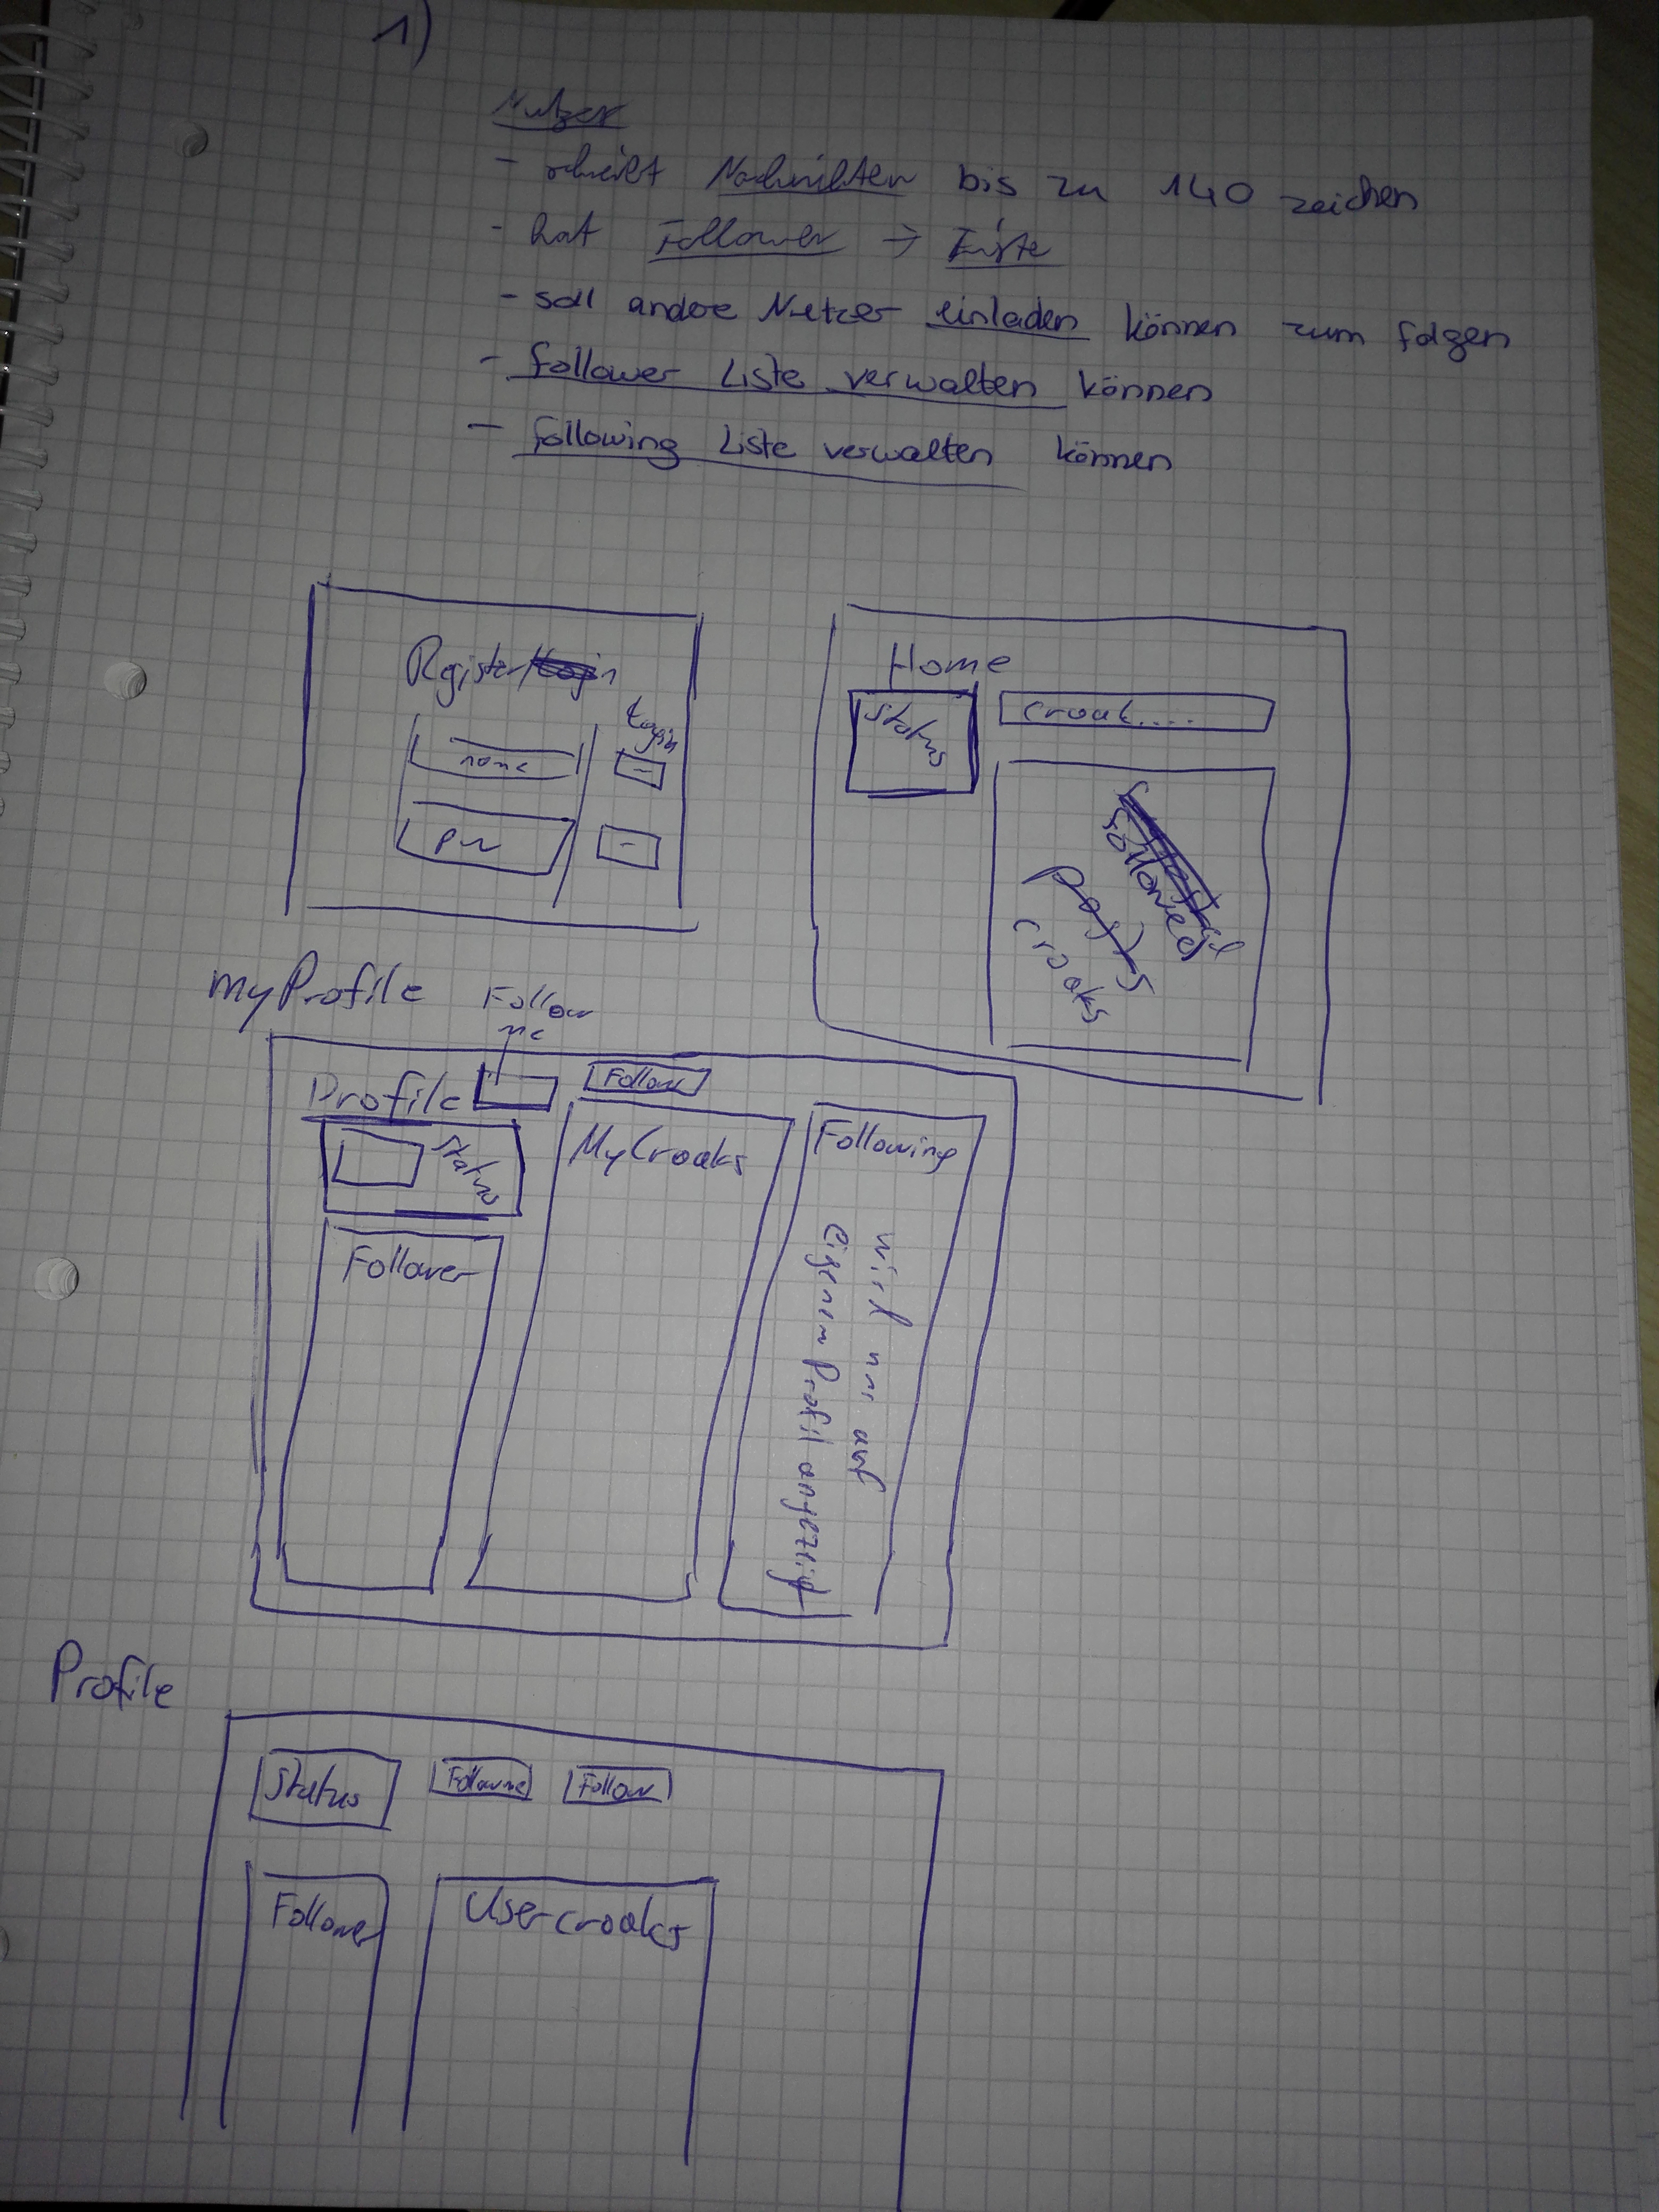 1)
Nutzer
- schreibt Nachrichten bis zu 140 zeichen
- hat Follower → Liste
- soll andere Nutzer einladen können zum folgen
- Follower Liste verwalten können
- Following Liste verwalten können
Register/Login
Login
name
pw
Home
Status
croak....
Followed
posts
croaks
myProfile
Follow
me
Profile
Follow
Status
MyCroaks
Following
Follower
wird nur auf
eigenem Profil angezeigt
Profile
Status
Followme
Follow
Follower
Usercroaks